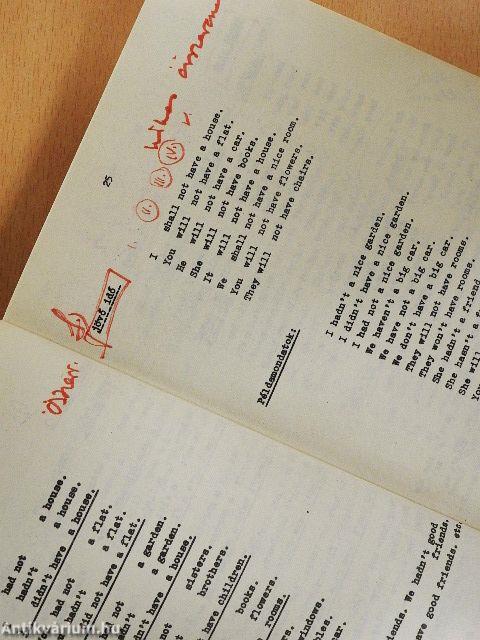 25
jövő idő
I shall not have a house.
You will not have a flat.
He will not have a car.
She will not have books.
It will not have a house.
We shall not have a nice room.
You will not have flowers.
They will not have chairs.
Példamondatok:
I hadn't a nice garden.
I didn't have a nice garden.
I had not a nice garden.
We haven't a big car.
We have not a big car.
We don't have a big car.
They will not have rooms.
They won't have rooms.
She hadn't a friend
She hasn't a
She will
had not a house.
hadn't a house.
didn't have a house.
had not a flat.
hadn't a flat.
did not have a flat.
not a garden.
a garden.
n't have a house.
sisters.
brothers.
have children.
books.
flowers.
rooms.
windows.
les.
We hadn't good friends.
are good friends. etc.
I.
II.
III.
IV.
Antikvárium.hu